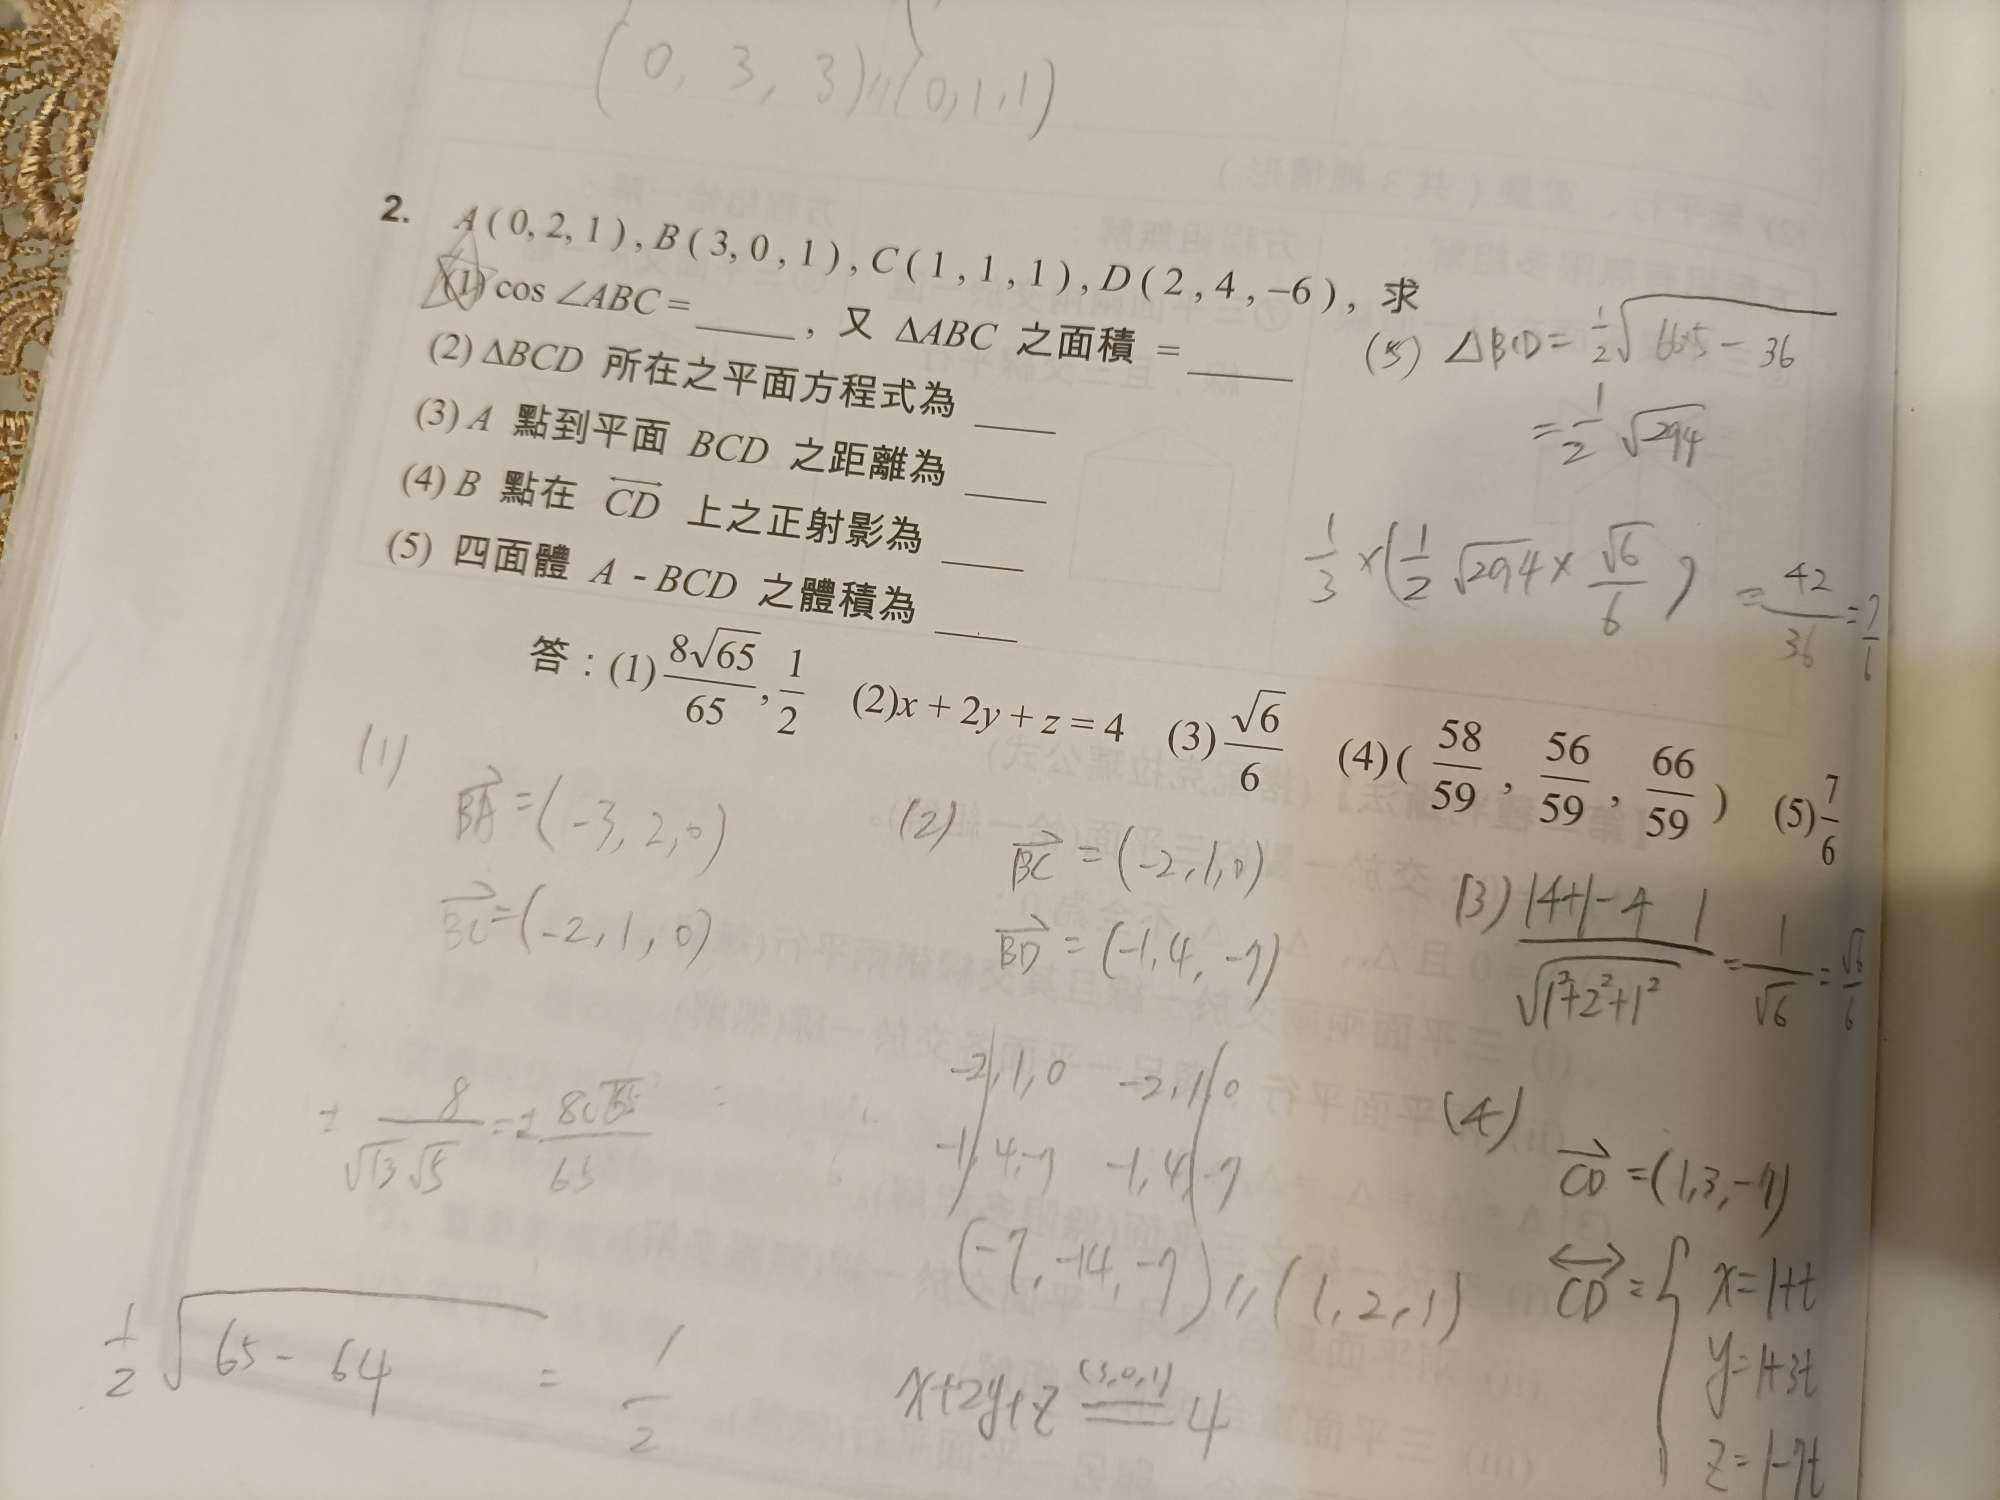 (0, 3, 3) // (0, 1, 1)
2. A(0, 2, 1), B(3, 0, 1), C(1, 1, 1), D(2, 4, −6), 求
(1) cos ∠ABC = ____, 又 ΔABC 之面積 = ____
(2) ΔBCD 所在之平面方程式為 ____
(3) A 點到平面 BCD 之距離為 ____
(4) B 點在 CD 上之正射影為 ____
(5) 四面體 A - BCD 之體積為 ____
(5) △BCD = 1/2 √(66×5 − 36)
= 1/2 √294
1/3 × (1/2 √294 × √6/6) = 42/36 = 7/6
答:(1) 8√65/65, 1/2 (2) x + 2y + z = 4 (3) √6/6 (4) (58/59, 56/59, 66/59) (5) 7/6
(1)
BA = (-3, 2, 0)
BC = (-2, 1, 0)
± 8/(√13 √5) = ± 8√65/65
1/2 √(65 - 64) = 1/2
(2)
BC = (-2, 1, 0)
BD = (-1, 4, -7)
-2, 1, 0 -2, 1, 0
-1, 4, -7 -1, 4, -7
(-7, -14, -7) // (1, 2, 1)
x+2y+z (3,0,1) = 4
(3) |4+1-4|/√(1²+2²+1²) = 1/√6 = √6/6
(4)
CD = (1, 3, -7)
CD = { x = 1+t
y = 1+3t
z = 1-7t